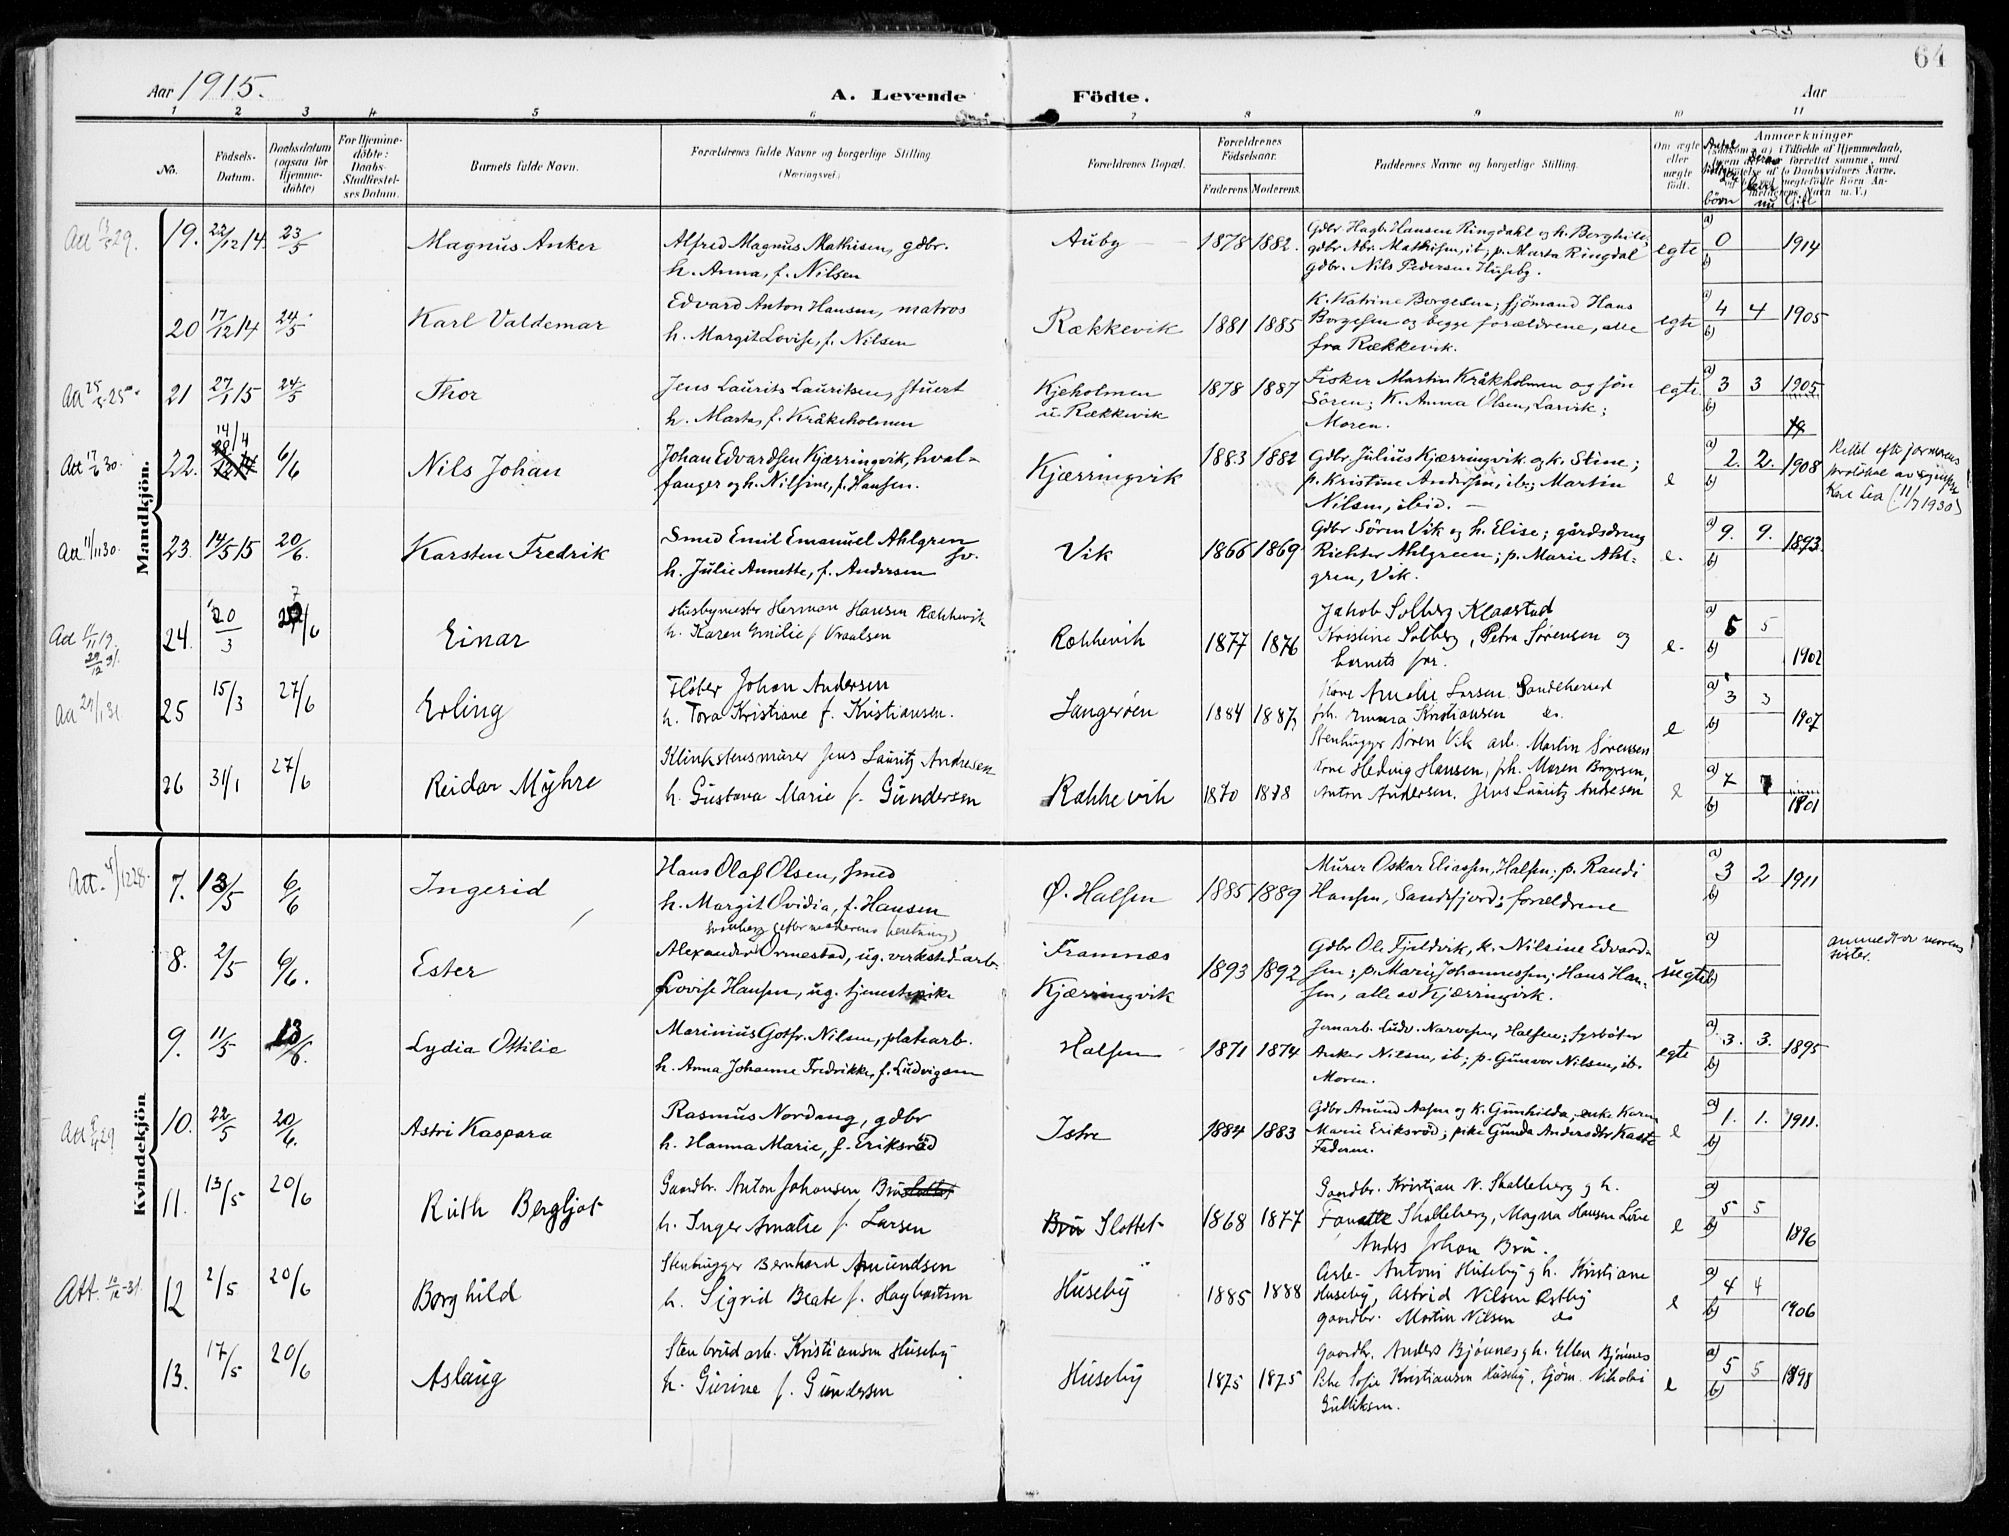 64
Aar 1915.
A. Levende Födte.
Aar
1 2 3 4 5 6 7 8 9 10 11
No.
Födsels-Datum.
Daabsdatum (ogsaa for Hjemmedöbte)
For Hjemmedöbte: Daabs-Stadfæstelses Datum.
Barnets fulde Navn.
Forældrenes fulde Navne og borgerlige Stilling
(Næringsvei)
Forældrenes Bopæl.
Forældrenes Födselsaar.
Faderens Moderens
Faddernes Navne og borgerlige Stilling.
Om ægte eller uægte födt.
Anmærkninger
Mandkjön.
19. 22/12 14. 23/5 Magnus Anker
Alfred Magnus Mathisen, gdbr.
h. Anna, f. Nilsen
Auby 1878 1882.
Gdbr Hagb. Hansen Ringdahl og h. Borghild;
gdbr. Abr. Mathisen, ib; p. Marta Ringdal
gdbr. Nils Pedersen Huseby.
egte a) 0 b) 1914
20 17/12 14 24/5 Karl Valdemar
Edvard Anton Hansen, matros
h. Margit Lovise, f. Nilsen
Rækkevik 1881 1885
K. Katrine Borgesen; sjömand Hans
Borgesen og begge forældrene, alle
fra Rækkevik.
egte a) 4 4 b) 1905
21 27/1 15 24/5 Thor
Jens Laurits Lauritsen, stuert
h. Marta, f. Kråkeholmen
Kjeholmen
u. Rækkevik
1878 1887
Fisker Martin Kråkholmen og sön
Sören; K. Anna Olsen, Larvik;
Moren.
egte. a) 3 3 b) 1905
Att 17/6 30. 22. 14/4 6/6 Nils Johan
Johan Edvardsen Kjærringvik, hval-
fanger og h. Nilsine, f. Hansen.
Kjærringvik 1883 1882
Gdbr Julius Kjærringvik og k. Stine;
p. Kristine Andersen, ib; Martin
Nilsen, ibid.
e a) 2. 2. b) 1908
Att 11/11 30. 23. 14/5 15 20/6. Karsten Fredrik
Smed Emil Emanuel Ahlgren
sv.
h. Julie Annette, f. Andersen
Vik 1866 1869
Gdbr Sören Vik og h. Elise; gårdsdreng
Richter Ahlgreen; p. Marie Ahl-
gren, Vik.
e. a) 9. 9. b) 1893.
24. 20/3 27/6 Einar
Husbymester Herman Hansen Rækkevik
h. Karen Emilie f. Vraalsen
Rækkevik 1877 1876
Jakob Solberg Klaastad
Kristine Solberg, Petra Sørensen og
barnets far.
e. a) 5 5 b) 1902
25 15/3 27/6 Erling
Fløter Johan Andersen
h. Tora Kristiane f. Kristiansen.
Langeröen 1884 1887
Kone Amalie Larsen Sandeherred
frk. Emma Kristiansen do.
Stenhugger Søren Vik arb. Martin Sørensen
e a) 3 3 b) 1907
26 31/1 27/6 Reidar Myhre
Klinkstensmurer Jens Lauritz Andresen
h. Gustava Marie f. Gundersen
Rækkevik 1870 1878
Kone Hedvig Hansen, frk. Maren Borgesen,
Anton Andersen. Jens Lauritz Andresen
e a) 7 7 b) 1901
Kvindekjön
Att. 4/12 28. 7. 13/5 6/6 Ingerid
Hans Olaf Olsen, smed
h. Margit Ovidia, f. Hansen
Ö. Halsen 1885 1889
Murer Oskar Eliassen, Halsen; p. Randi
Hansen, Sandefjord; forældrene
a) 3 2 b) 1911
8. 2/5 6/6. Ester
Alexander Ormestad, ug. verkstd-arb.
Lovise Hansen, ug. tjenestepike
Framnæs
Kjærringvik
1893 1892
Gdbr Ole Fjeldvik, k. Nilsine Edvard-
sen; p. Marie Johannessen; Hans Han-
sen, alle av Kjærringvik.
uegte a) b)
anmeldt av morens
söster.
9. 11/5 13/6. Lydia Ottilie
Marinius Gotfr. Nilsen, platearb.
h. Anna Johanne Fredrikke, f. Ludvigsen
Halsen 1871 1874
Jernarb. Ludv. Narvesen, Halsen; fyrböter
Anker Nilsen, ib; p. Gunvor Nilsen, ib.
Moren.
egte a) 3. 3. b) 1895
10. 22/5 20/6. Astri Kaspara
Rasmus Nordang, gdbr
h. Hanna Marie, f. Eriksröd
Istre 1884 1883
Gdbr Amund Aasen og k. Gunhilda; enke Karen
Marie Eriksröd; pike Gunda Andersdtr Kaste
Faderen.
e a) 1. 1. b) 1911.
11. 13/5 20/6 Ruth Bergljot
Gaardbr. Anton Johansen Bru
h. Inger Amalie f. Larsen
Bru Slottet 1868 1877
Gaardbr. Kristian N. Skalleberg g h.
Fanette Skalleberg, Magna Hansen Löve
Anders Johan Bru.
e a) 5 5 b) 1896
12 2/5 20/6 Borghild
Stenhugger Bernhard Amundsen
h. Sigrid Beate f. Hagbartsen
Huseby 1885 1888
Arb. Antoni Huseby g h. Kristiane
Huseby, Astrid Nilsen Østby
gaardbr. Martin Nilsen do
e a) 4 4 b) 1906
13. 17/5 20/6 Aslaug
Stenbrudarb. Kristiansen Huseby
h. Gurine f. Gundersen
Huseby 1875 1875
Gaardbr. Anders Bjønnes g h. Ellen Bjønnes
Pike Sofie Kristiansen Huseby, tjom. Nikolai
Gulliksen.
e a) 5 5 b) 1898